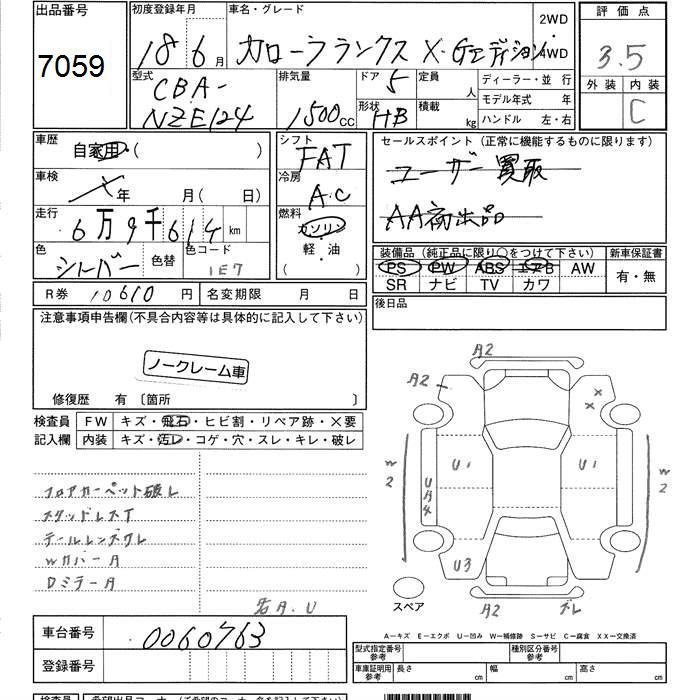 出品番号
7059
初度登録年月
18年6月
車名・グレード
カローラランクス X・Gエディション
2WD
4WD
評価点
3.5
外装 内装
C
型式
CBA-
NZE124
排気量
1500cc
ドア 5
形状 HB
定員 人
積載 kg
ディーラー・並行
モデル年式 年
ハンドル 左・右
車歴 自家用・( )
シフト
FAT
セールスポイント (正常に機能するものに限ります)
ユーザー買取
AA初出品
車検 年 月(日)
冷房
A.C
走行 6万9千614km
燃料
ガソリン
軽・油
( )
色 シルバー 色替 色コード 1E7
装備品 (純正品に限り○をつけて下さい) 新車保証書
PS PW ABS エアB AW
SR ナビ TV カワ
有・無
R券 10610円 名変期限 月 日
後日品
注意事項申告欄(不具合内容等は具体的に記入して下さい)
ノークレーム車
修復歴 有〔箇所 〕
検査員
記入欄
FW キズ・飛石・ヒビ割・リペア跡・×要
内装 キズ・汚レ・コゲ・穴・スレ・キレ・破レ
フロアカーペット破レ
スタッドレスT
テールレンズワレ
Wカバー A
Dミラー A
若A.U
A2
A2
× ×
W2
U1
U1
W2
UA4
U3
スペア
A2 ズレ
A-キズ E-エクボ U-凹み W-補修跡 S-サビ C-腐食 XX-交換済
車台番号 0060763
登録番号
型式指定番号 参考
種別区分番号 参考
車庫証明用 参考
長さ cm 幅 cm 高さ cm